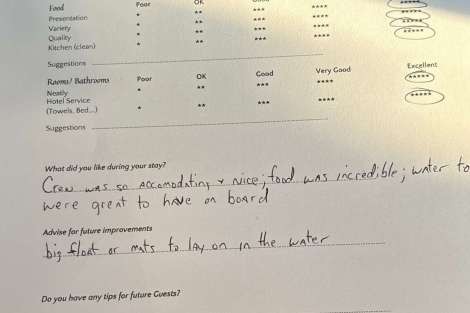 Food Poor OK **** *****
Presentation * ** *** **** *****
Variety * ** *** **** *****
Quality * ** *** **** *****
Kitchen (clean) * ** *** **** *****
Suggestions
Rooms/ Bathrooms Poor OK Good Very Good Excellent
Neatly * ** *** **** *****
Hotel Service
(Towels, Bed...) * ** *** **** *****
Suggestions
What did you like during your stay?
Crew was so accomodating + nice; food was incredible; water to
were great to have on board
Advise for future improvements
big float or mats to lay on in the water
Do you have any tips for future Guests?